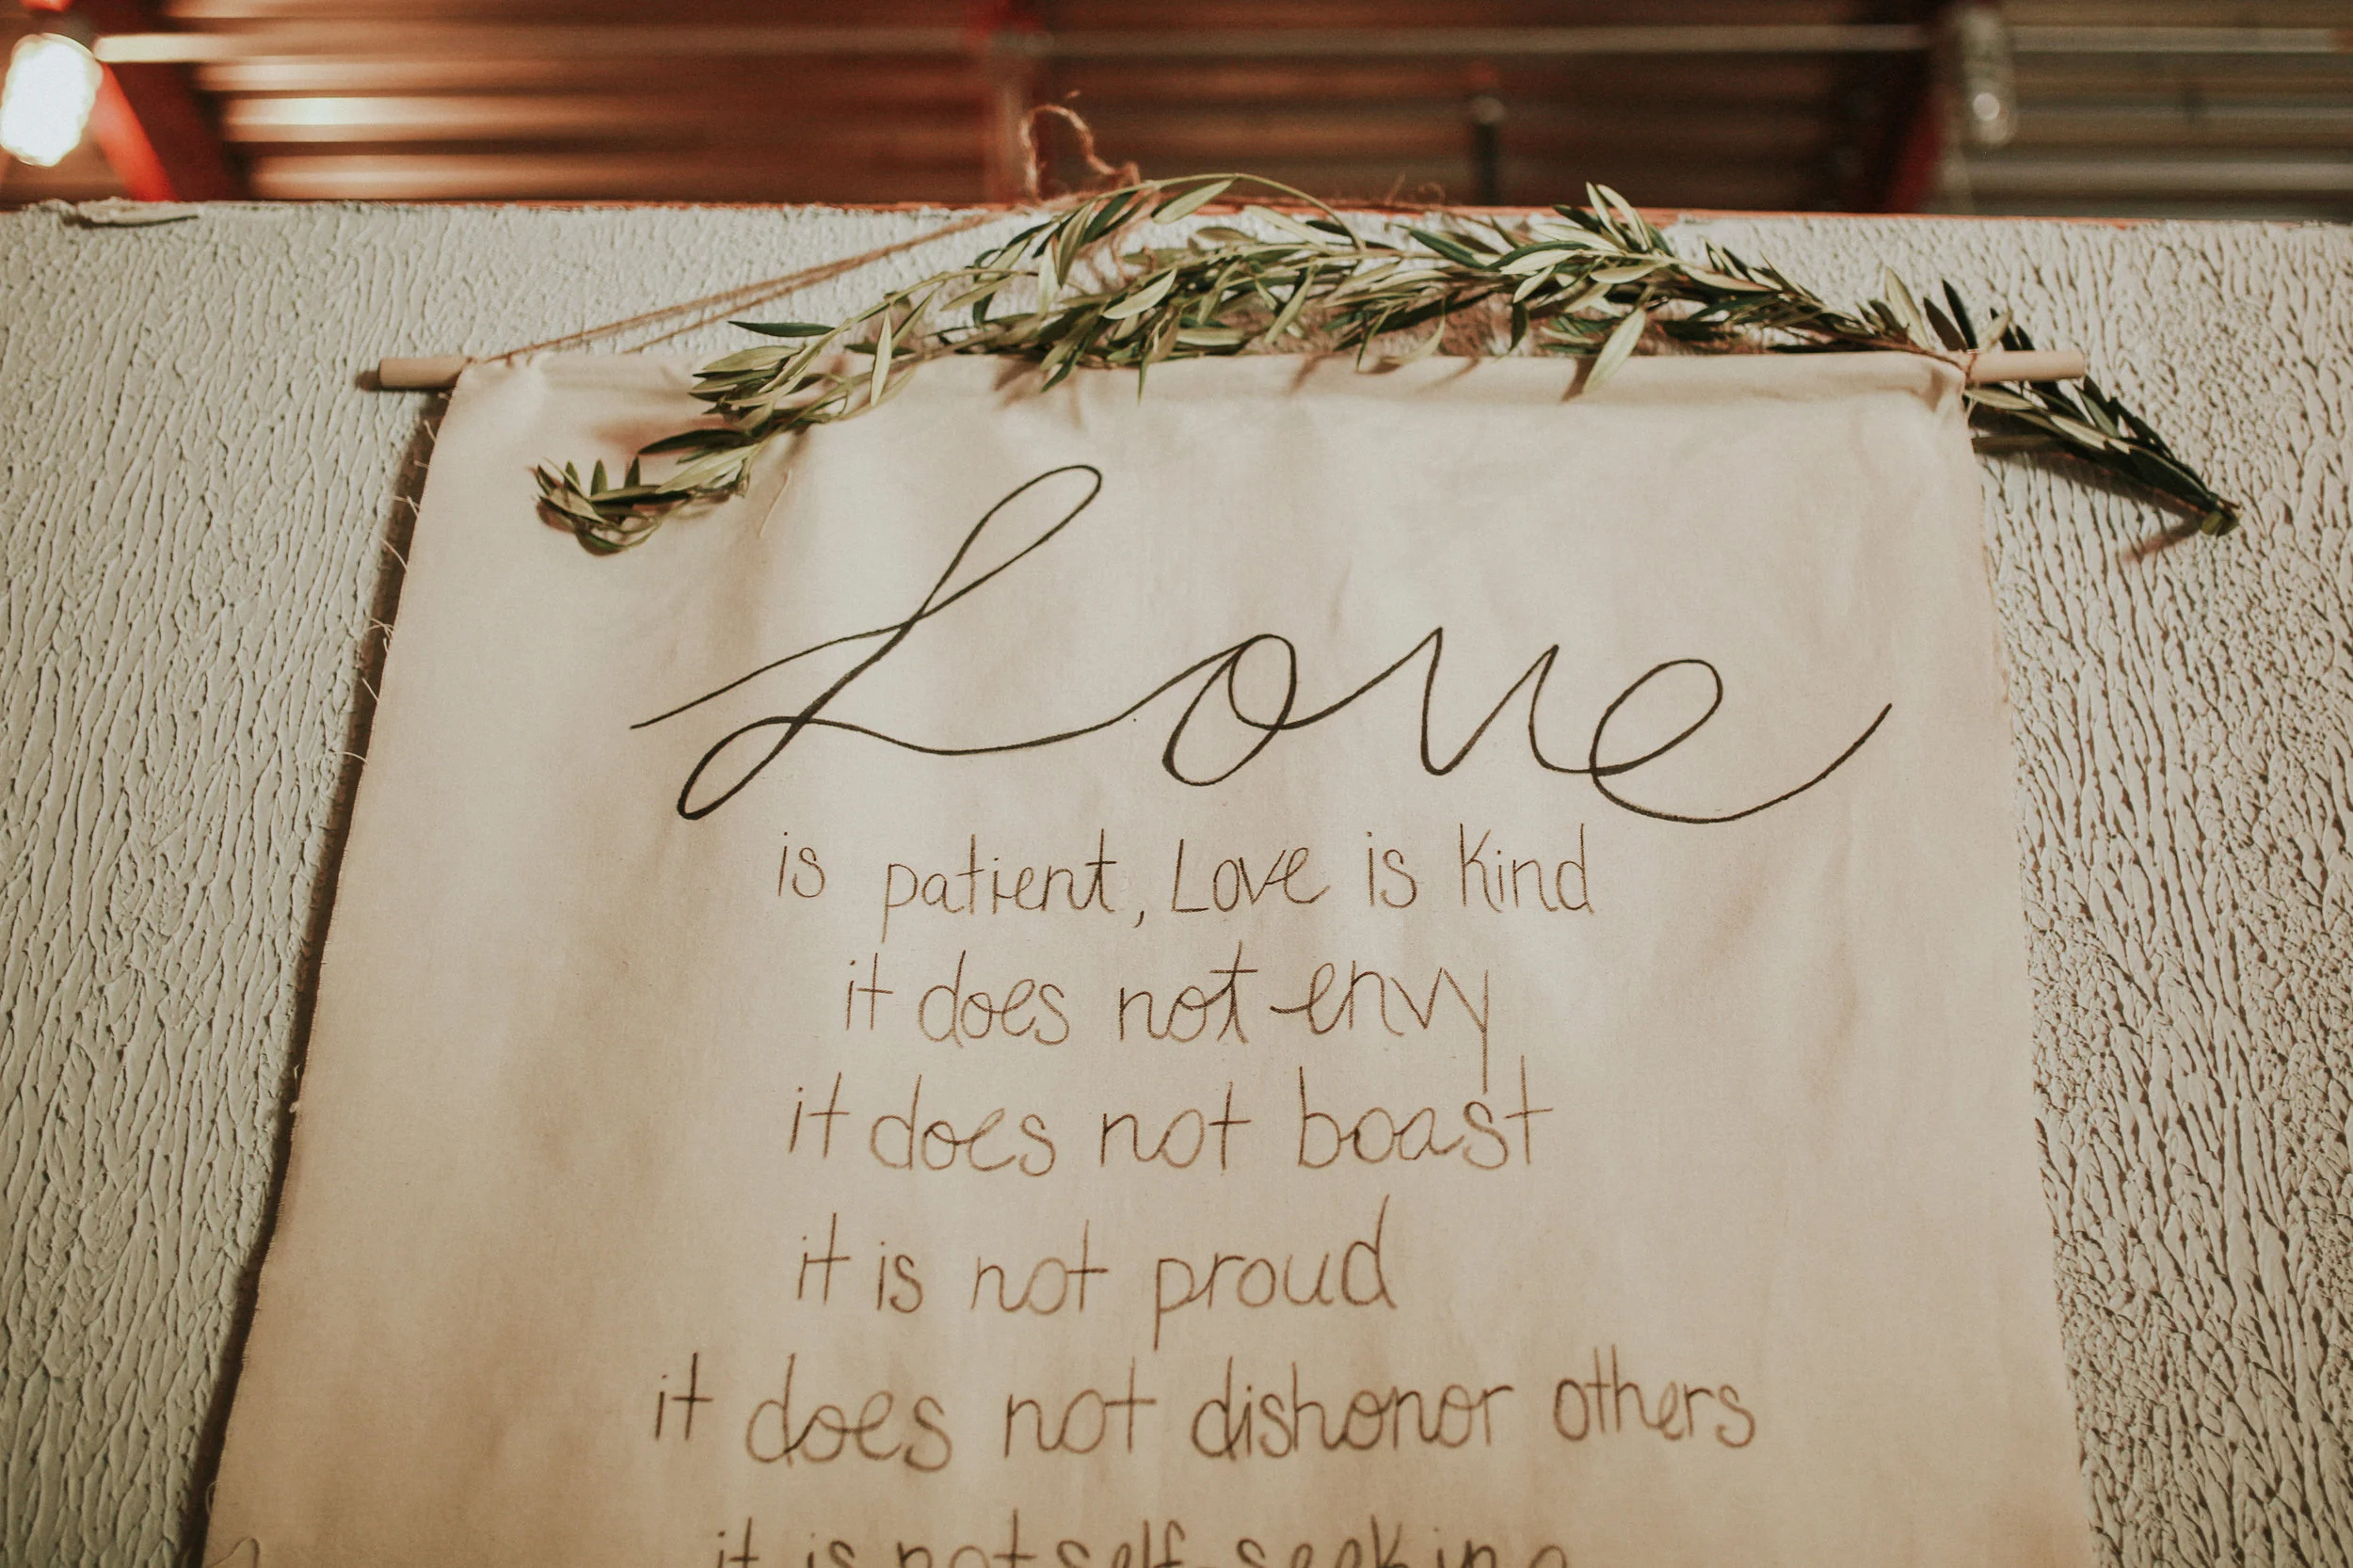 Love
is patient, Love is kind
it does not envy
it does not boast
it is not proud
it does not dishonor others
it is not self-seeking